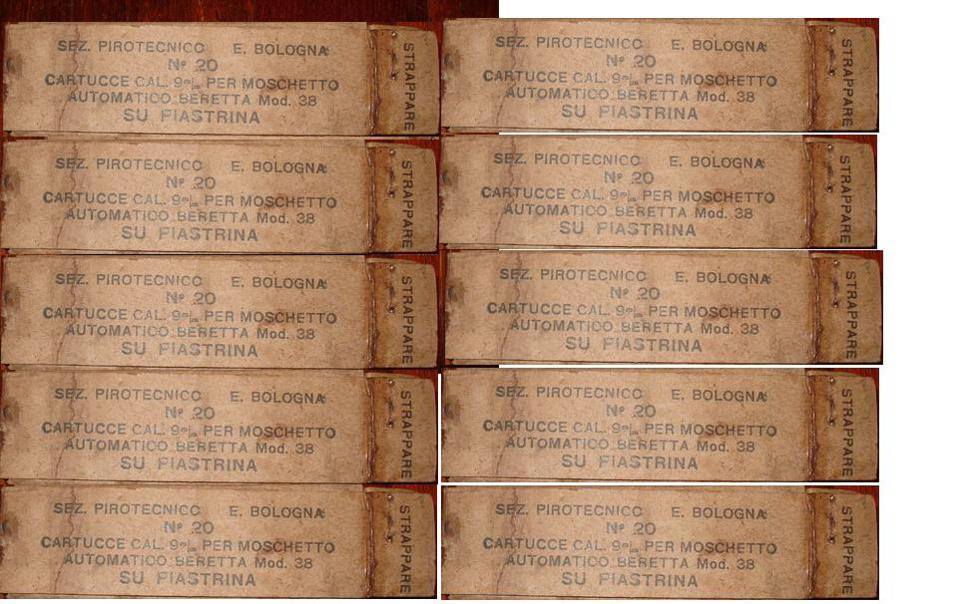 SEZ. PIROTECNICO E. BOLOGNA
Nº 20
CARTUCCE CAL. 9m/m PER MOSCHETTO
AUTOMATICO BERETTA Mod. 38
SU PIASTRINA
STRAPPARE
SEZ. PIROTECNICO E. BOLOGNA
Nº 20
CARTUCCE CAL. 9m/m PER MOSCHETTO
AUTOMATICO BERETTA Mod. 38
SU PIASTRINA
STRAPPARE
SEZ. PIROTECNICO E. BOLOGNA
Nº 20
CARTUCCE CAL. 9m/m PER MOSCHETTO
AUTOMATICO BERETTA Mod. 38
SU PIASTRINA
STRAPPARE
SEZ. PIROTECNICO E. BOLOGNA
Nº 20
CARTUCCE CAL. 9m/m PER MOSCHETTO
AUTOMATICO BERETTA Mod. 38
SU PIASTRINA
STRAPPARE
SEZ. PIROTECNICO E. BOLOGNA
Nº 20
CARTUCCE CAL. 9m/m PER MOSCHETTO
AUTOMATICO BERETTA Mod. 38
SU PIASTRINA
STRAPPARE
SEZ. PIROTECNICO E. BOLOGNA
Nº 20
CARTUCCE CAL. 9m/m PER MOSCHETTO
AUTOMATICO BERETTA Mod. 38
SU PIASTRINA
STRAPPARE
SEZ. PIROTECNICO E. BOLOGNA
Nº 20
CARTUCCE CAL. 9m/m PER MOSCHETTO
AUTOMATICO BERETTA Mod. 38
SU PIASTRINA
STRAPPARE
SEZ. PIROTECNICO E. BOLOGNA
Nº 20
CARTUCCE CAL. 9m/m PER MOSCHETTO
AUTOMATICO BERETTA Mod. 38
SU PIASTRINA
STRAPPARE
SEZ. PIROTECNICO E. BOLOGNA
Nº 20
CARTUCCE CAL. 9m/m PER MOSCHETTO
AUTOMATICO BERETTA Mod. 38
SU PIASTRINA
STRAPPARE
SEZ. PIROTECNICO E. BOLOGNA
Nº 20
CARTUCCE CAL. 9m/m PER MOSCHETTO
AUTOMATICO BERETTA Mod. 38
SU PIASTRINA
STRAPPARE